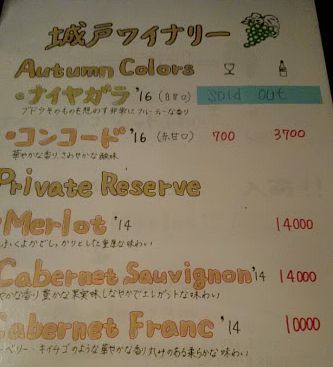 城戸ワイナリー
Autumn Colors
・ナイヤガラ '16 (白甘口) Sold out
ブドウそのものを思わす非常にフルーティーな香り
・コンコード '16 (赤甘口) 700 3700
華やかな香り、さわやかな酸味
Private Reserve
Merlot '14 14000
ふくよかでしっかりとした重厚な味わい
Cabernet Sauvignon '14 14000
やかな香り豊かな果実味しなやかでエレガントな味わい
Cabernet Franc '14 10000
ベリー・キイチゴのような華やかな香り丸みのある柔らかな味わい